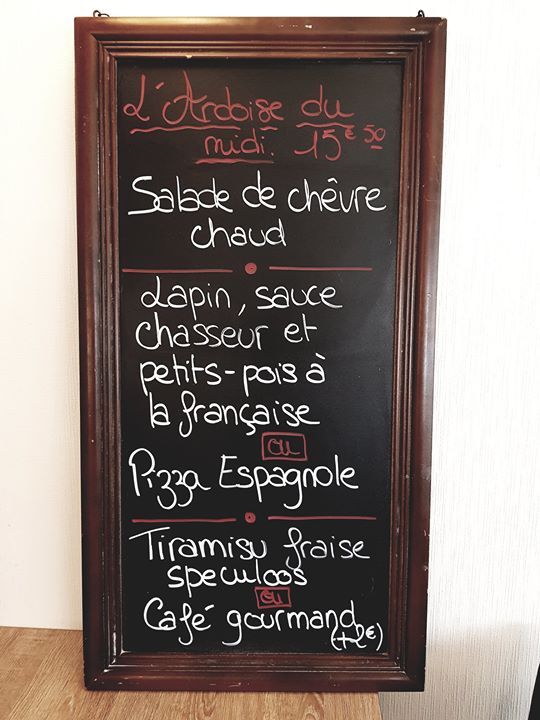 L'Ardoise du
midi. 15€50
Salade de chêvre
chaud
Lapin, sauce
chasseur et
petits-pois à
la française
ou
Pizza Espagnole
Tiramisu fraise
speculoos
ou
Café gourmand
(+2€)